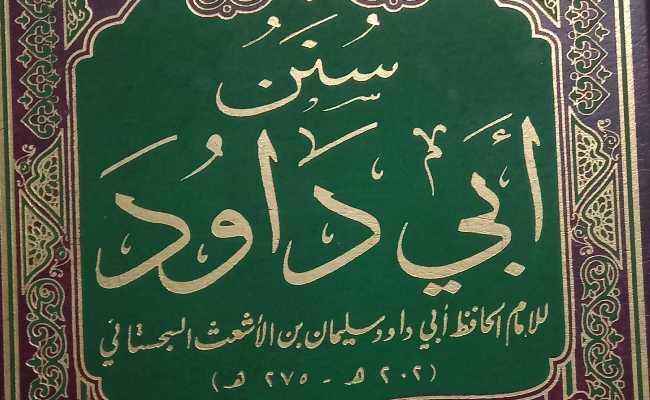 سُنَنُ
أَبِي دَاوُدَ
للامام الحافظ أبي داود سليمان بن الأشعث السجستاني
(٢٠٢ هـ - ٢٧٥ هـ)